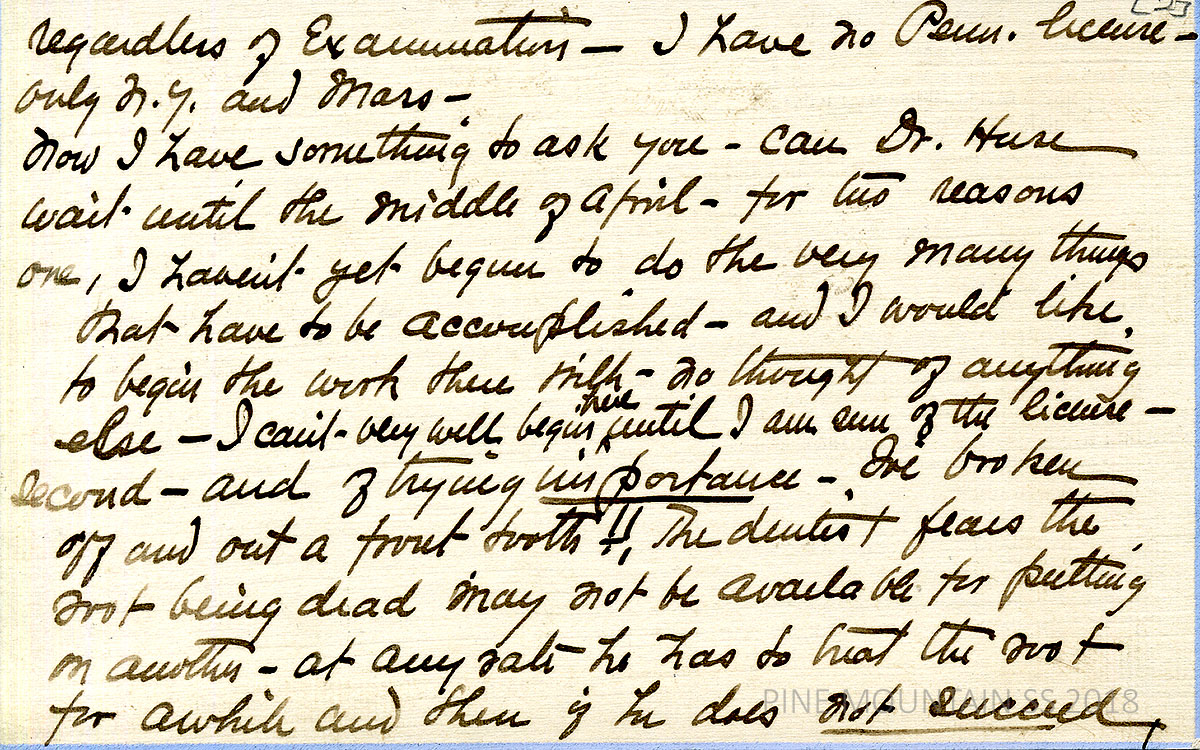 [2]
regardless of Examination — I have no Penn. license —
only N.Y. and Mass —
Now I have something to ask you — can Dr. Huse
wait until the middle of April — for two reasons
one, I haven't yet begun to do the very many things
that have to be accomplished — and I would like
to begin the work there with — no thought of anything
else — I can't very well begin there until I am sure of the license —
Second — and of trying importance — I've broken
off and out a front tooth!!, The dentist fears the
root being dead may not be available for putting
on another — at any rate he has to treat the root
for awhile and then if he does not succeed,
PINE MOUNTAIN SS 2018